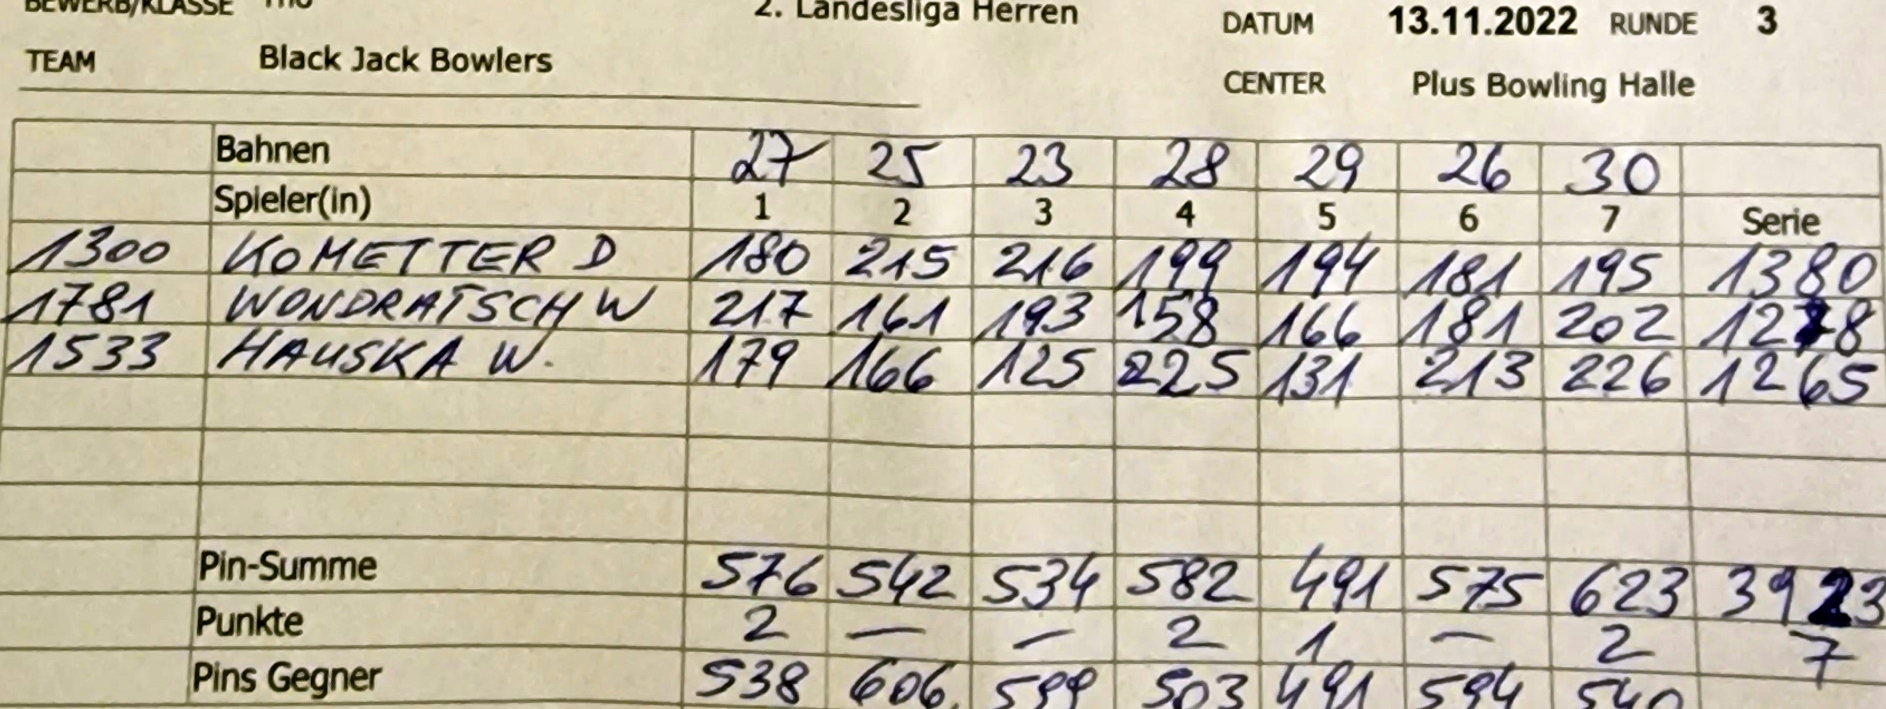 BEWERB/KLASSE 2. Landesliga Herren DATUM 13.11.2022 RUNDE 3
TEAM Black Jack Bowlers CENTER Plus Bowling Halle
Bahnen 27 25 23 28 29 26 30
Spieler(in) 1 2 3 4 5 6 7 Serie
1300 KOMETTER D 180 215 216 199 194 181 195 1380
1781 WONDRATSCH W 217 161 193 158 166 181 202 1278
1533 HAUSKA W. 179 166 125 225 131 213 226 1265
Pin-Summe 576 542 534 582 491 575 623 3923
Punkte 2 — — 2 1 — 2 7
Pins Gegner 538 606 599 503 491 594 540